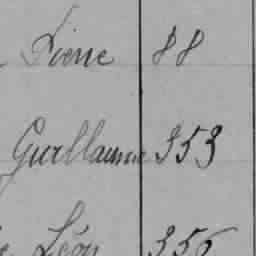 Pierre 88
Guillaume 353
Léon 356